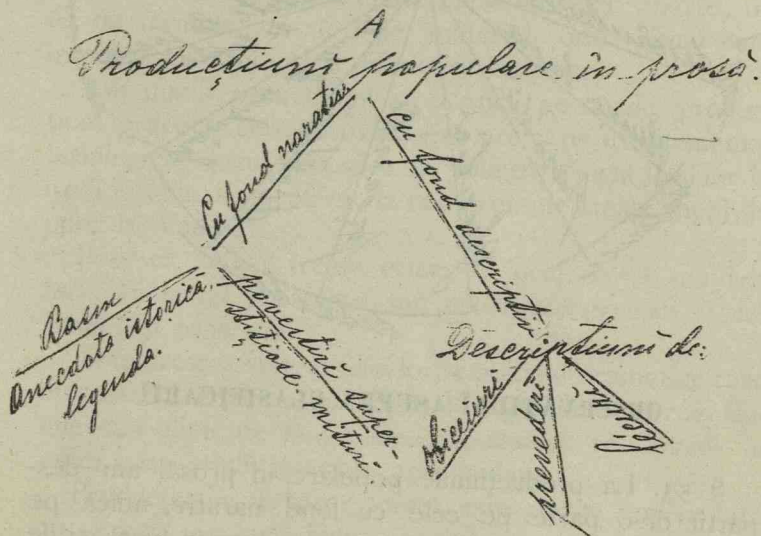 A
Producțiuni populare in prosă.
Cu fond narativ
cu fond descriptiv
Basm
Anecdota istorică,
legenda.
povestiri super-
stițiose, mituri
Descripțiuni de:
obiceiuri
prevederi